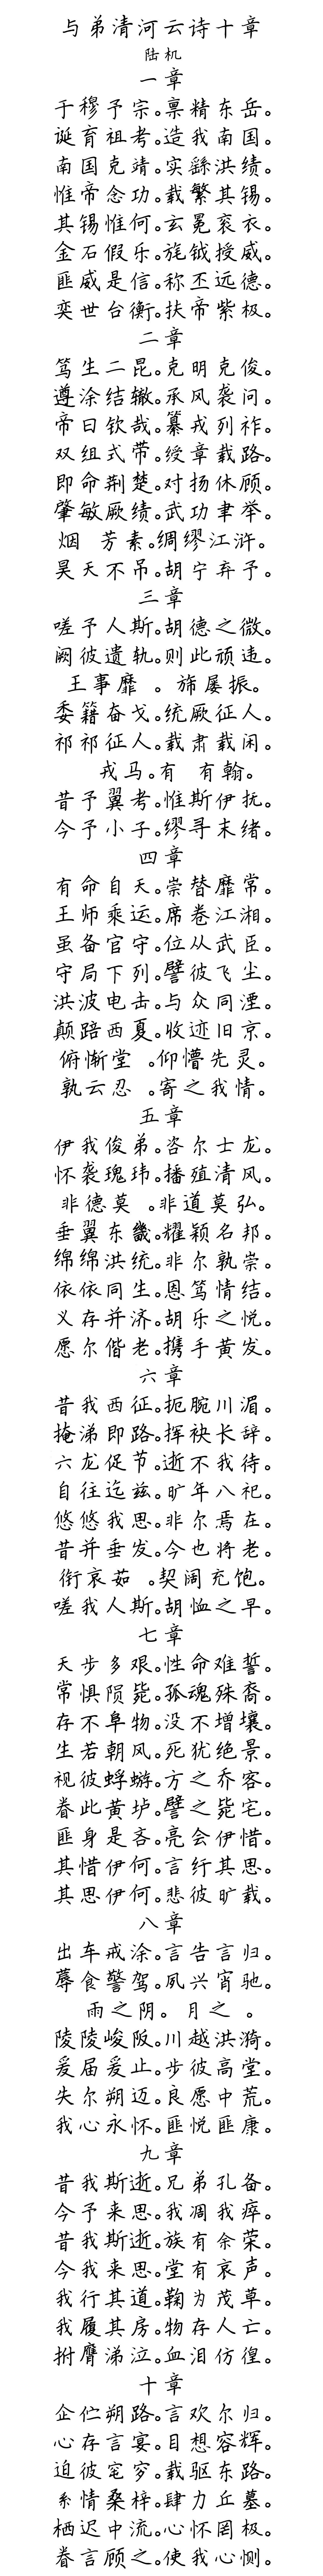 与弟清河云诗十章
陆机
一章
于穆予宗。禀精东岳。
诞育祖考。造我南国。
南国克靖。实繇洪绩。
惟帝念功。载繁其锡。
其锡惟何。玄冕衮衣。
金石假乐。旄钺授威。
匪威是信。称丕远德。
奕世台衡。扶帝紫极。
二章
笃生二昆。克明克俊。
遵涂结辙。承风袭问。
帝曰钦哉。纂戎列祚。
双组式带。绶章载路。
即命荆楚。对扬休顾。
肇敏厥绩。武功聿举。
烟 芳素。绸缪江浒。
昊天不吊。胡宁弃予。
三章
嗟予人斯。胡德之微。
阙彼遗轨。则此顽违。
王事靡 。旆屡振。
委籍奋戈。统厥征人。
祁祁征人。载肃载闲。
 戎马。有 有翰。
昔予翼考。惟斯伊抚。
今予小子。缪寻末绪。
四章
有命自天。崇替靡常。
王师乘运。席卷江湘。
虽备官守。位从武臣。
守局下列。譬彼飞尘。
洪波电击。与众同湮。
颠踣西夏。收迹旧京。
俯惭堂 。仰懵先灵。
孰云忍 。寄之我情。
五章
伊我俊弟。咨尔士龙。
怀袭瑰玮。播殖清风。
非德莫 。非道莫弘。
垂翼东畿。耀颖名邦。
绵绵洪统。非尔孰崇。
依依同生。恩笃情结。
义存并济。胡乐之悦。
愿尔偕老。携手黄发。
六章
昔我西征。扼腕川湄。
掩涕即路。挥袂长辞。
六龙促节。逝不我待。
自往迄兹。旷年八祀。
悠悠我思。非尔焉在。
昔并垂发。今也将老。
衔哀茹 。契阔充饱。
嗟我人斯。胡恤之早。
七章
天步多艰。性命难誓。
常惧陨毙。孤魂殊裔。
存不阜物。没不增壤。
生若朝风。死犹绝景。
视彼蜉蝣。方之乔客。
眷此黄垆。譬之毙宅。
匪身是吝。亮会伊惜。
其惜伊何。言纡其思。
其思伊何。悲彼旷载。
八章
出车戒涂。言告言归。
蓐食警驾。夙兴宵驰。
雨之阴。月之 。
陵陵峻阪。川越洪漪。
爰届爰止。步彼高堂。
失尔朔迈。良愿中荒。
我心永怀。匪悦匪康。
九章
昔我斯逝。兄弟孔备。
今予来思。我凋我瘁。
昔我斯逝。族有余荣。
今我来思。堂有哀声。
我行其道。鞠为茂草。
我履其房。物存人亡。
拊膺涕泣。血泪彷徨。
十章
企伫朔路。言欢尔归。
心存言宴。目想容辉。
迫彼窀穸。载驱东路。
系情桑梓。肆力丘墓。
栖迟中流。心怀罔极。
眷言顾之。使我心恻。